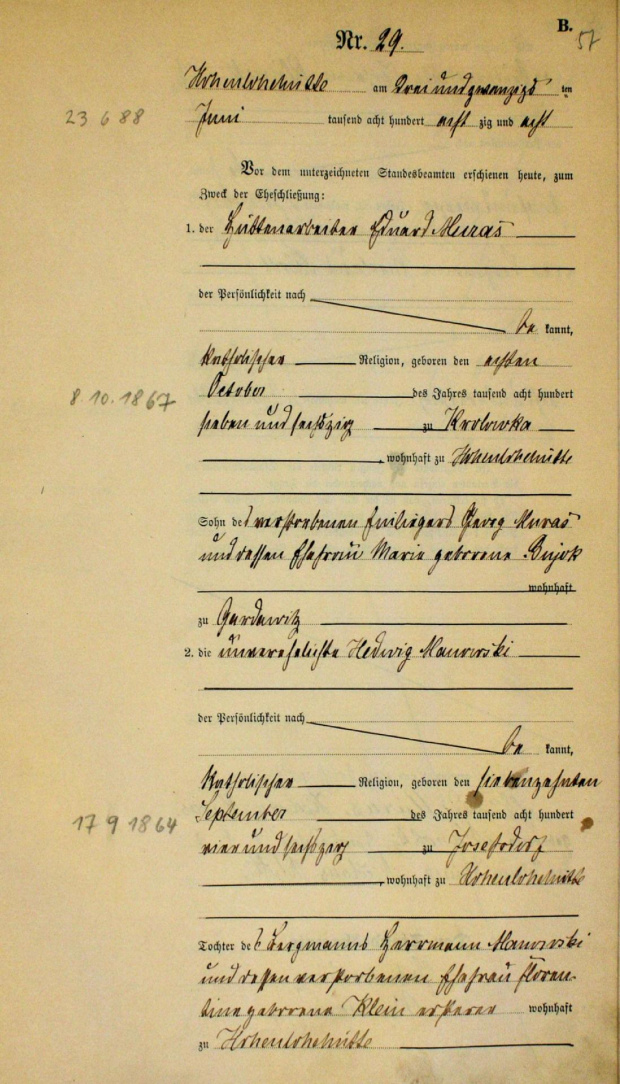 B.
Nr. 29.
57
Hohenlohehütte am drei und zwanzigs ten
23 6 88
Juni tausend acht hundert acht zig und acht
Vor dem unterzeichneten Standesbeamten erschienen heute, zum
Zweck der Eheschließung:
1. der Hüttenarbeiter Eduard Muras
der Persönlichkeit nach
be kannt,
katholischer Religion, geboren den achten
8. 10. 1867
October des Jahres tausend acht hundert
sieben und sechszig zu Krolowka
, wohnhaft zu Hohenlohehütte
Sohn des verstorbenen Georg Muras
und dessen Ehefrau Marie geborene Bujok
wohnhaft
zu Gardawitz
2. die unverehelichte Hedwig Manowski
der Persönlichkeit nach
be kannt,
katholischer Religion, geboren den siebenzehnten
17 9 1864
September des Jahres tausend acht hundert
vier und sechszig zu Josefsdorf
, wohnhaft zu Hohenlohehütte
Tochter des Bergmanns Herrmann Manowski
und dessen verstorbenen Ehefrau Floren-
tine geborene Klein ersterer wohnhaft
zu Hohenlohehütte